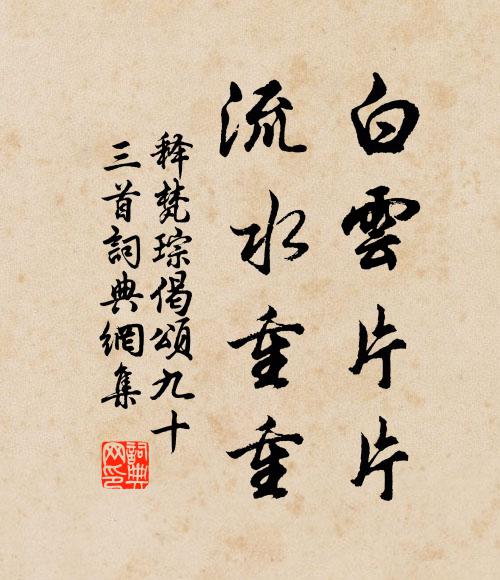 白雲片片
流水重重
釋梵琮偈頌九十
三首詞典網集
詞典
网印